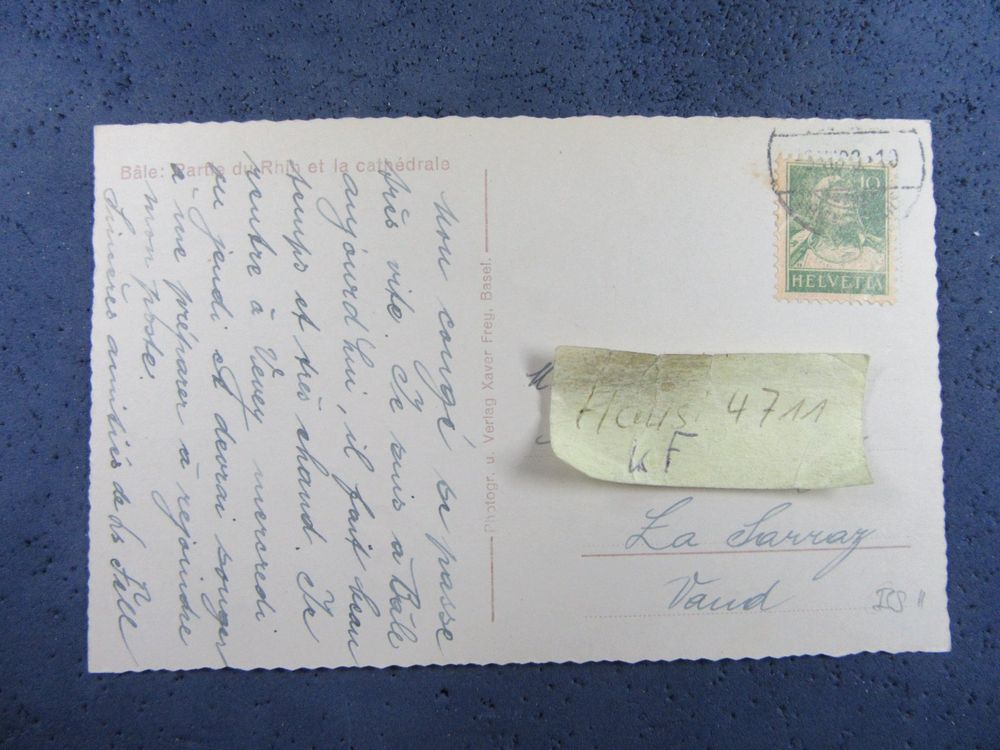 Bâle: Partie du Rhin et la cathédrale
Mon congé se passe
très vite. Je suis à Bâle
aujourd'hui, il fait beau
temps et très chaud. Je
rentre à Vevey mercredi
ou jeudi et devrai songer
à me préparer à rejoindre
mon poste.
Sincères amitiés de
Photogr. u. Verlag Xaver Frey, Basel.
10
HELVETIA
Hausi 4711
K F
La Sarraz
Vaud